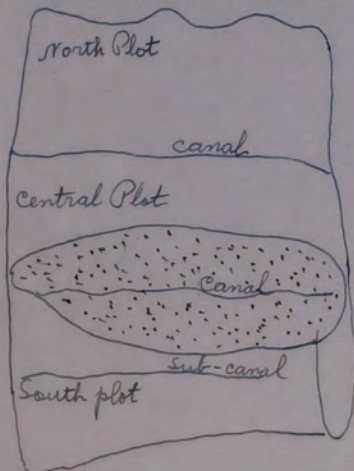 North Plot
canal
Central Plot
Canal
Sub-canal
South plot